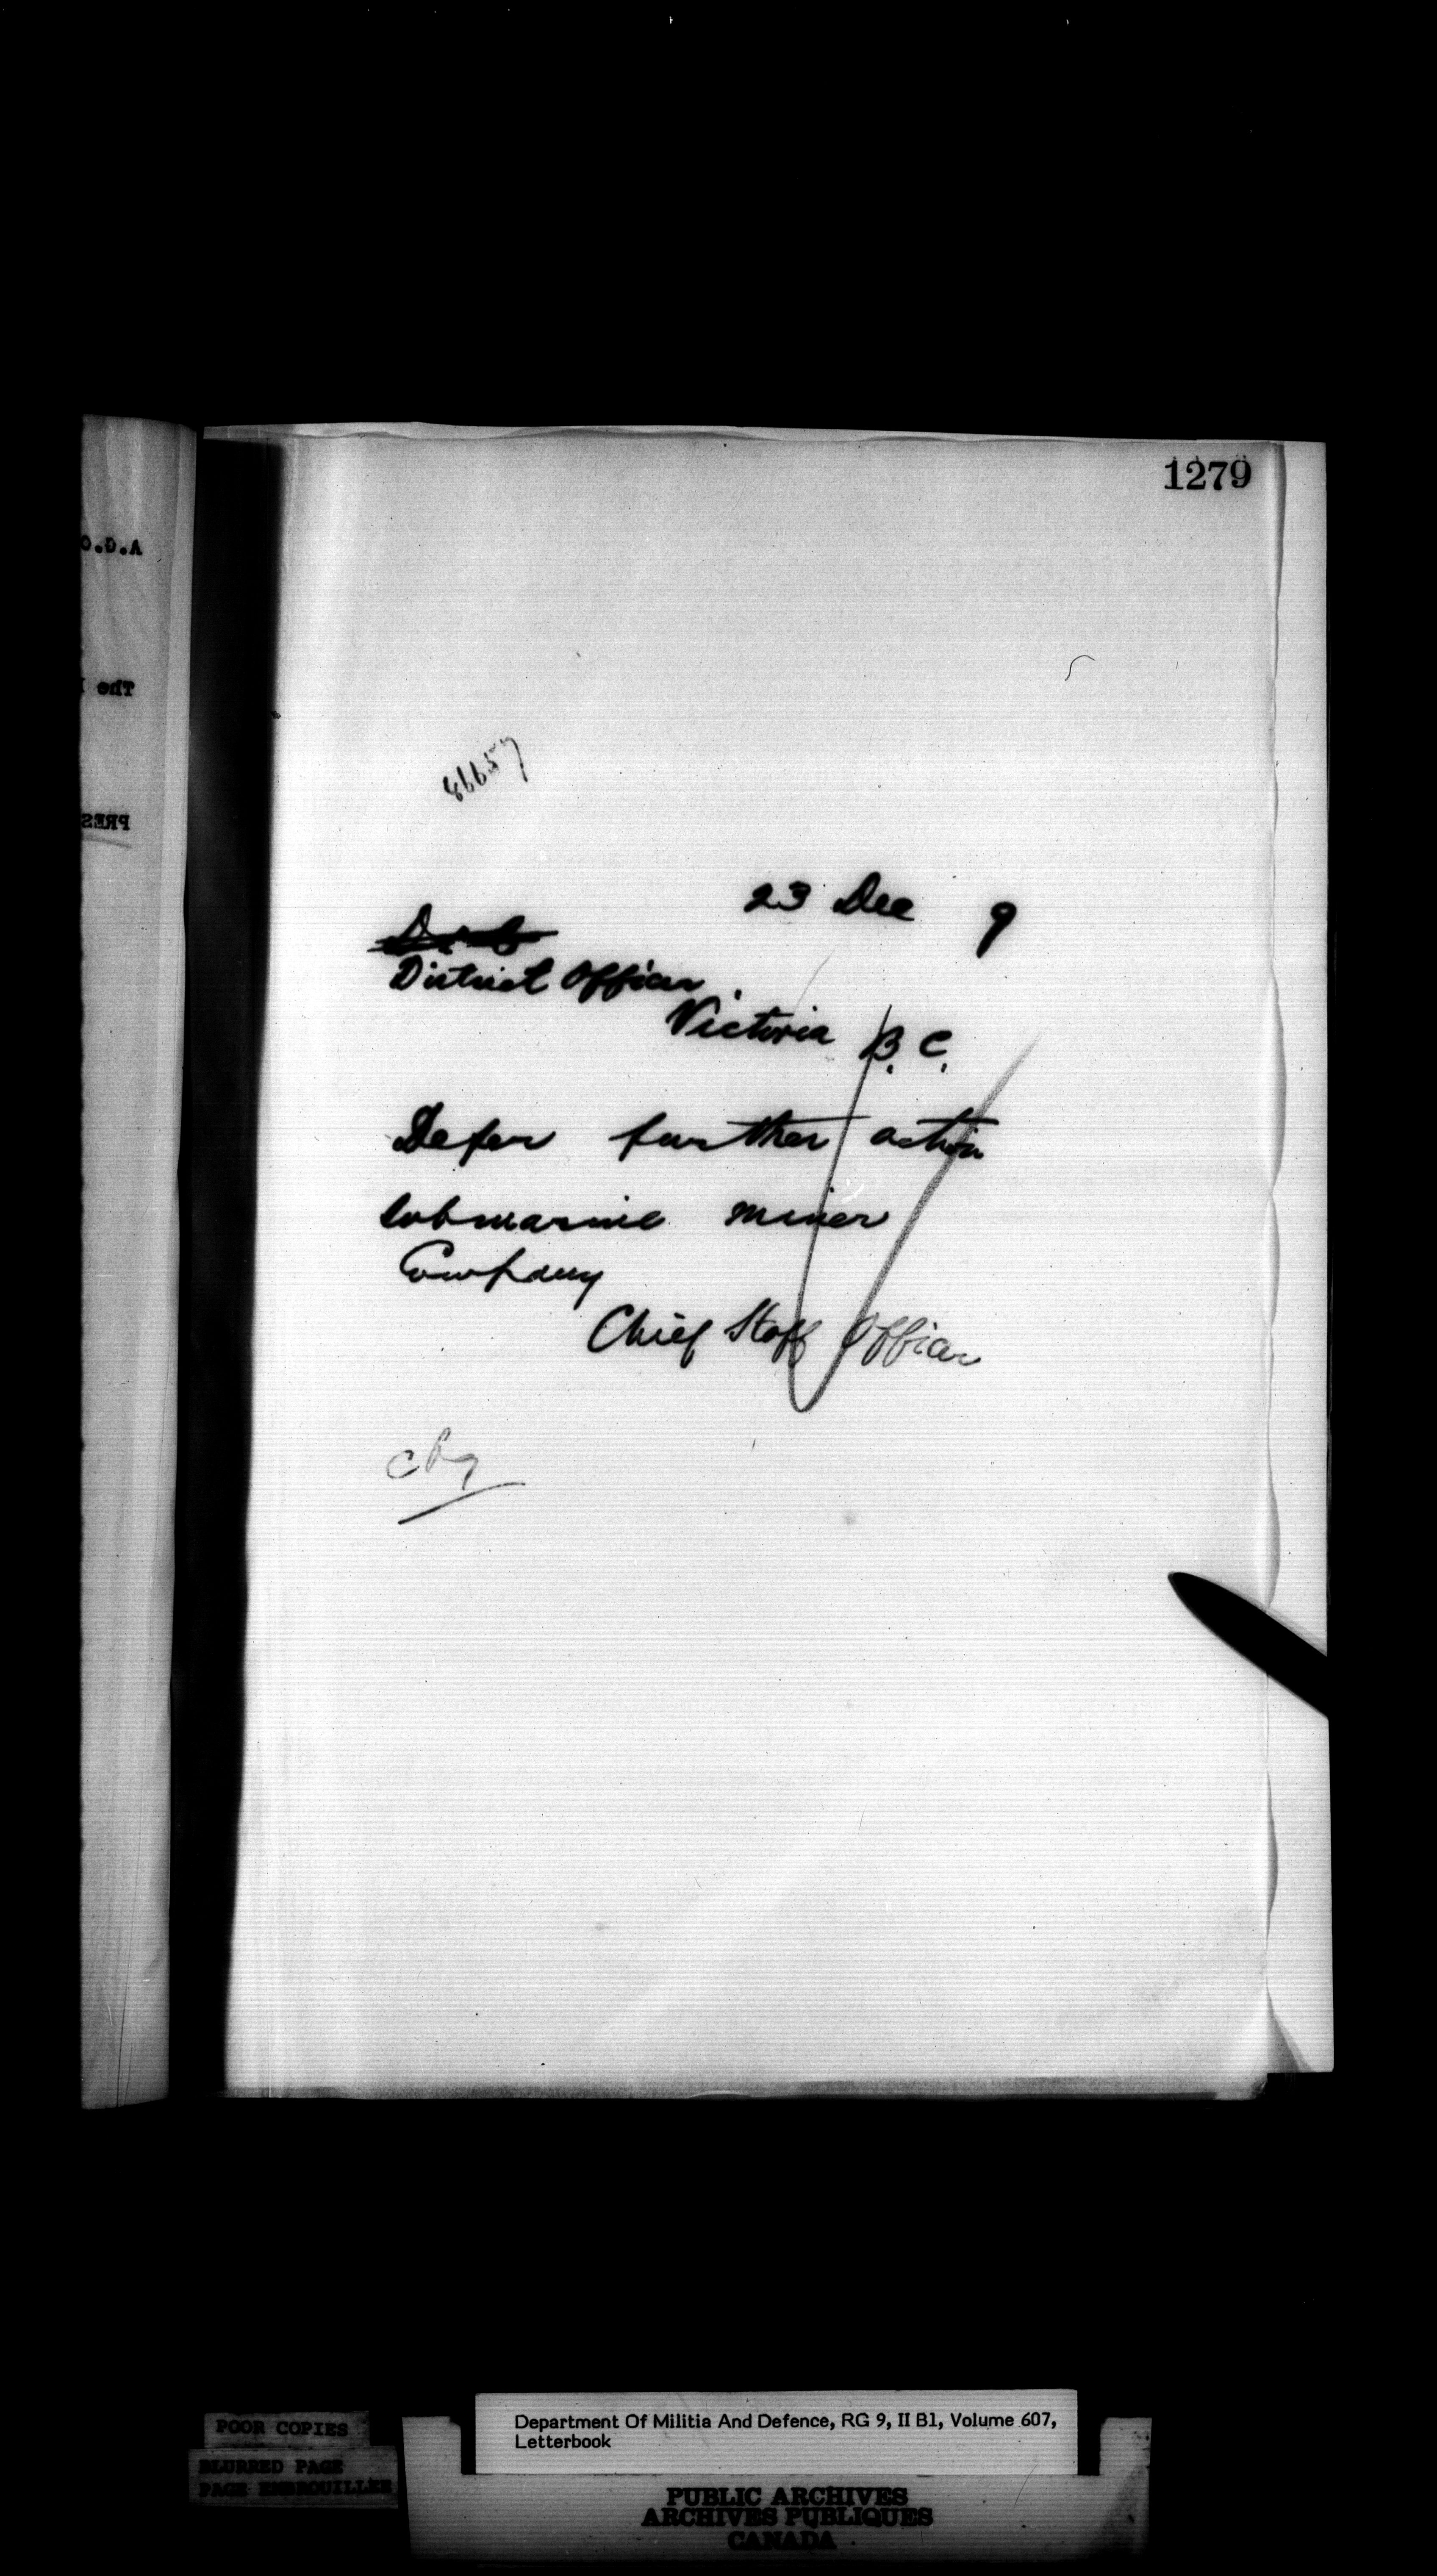 1279
A.G.O
The
PRES
86657
23 Dec 9
District Officer.
Victoria B.C.
Defer further action
submarine miner
Company
Chief Staff Officer
POOR COPIES
BLURRED PAGE
PAGE EMBROUILLEE
Department Of Militia And Defence, RG 9, II B1, Volume 607,
Letterbook
PUBLIC ARCHIVES
ARCHIVES PUBLIQUES
CANADA